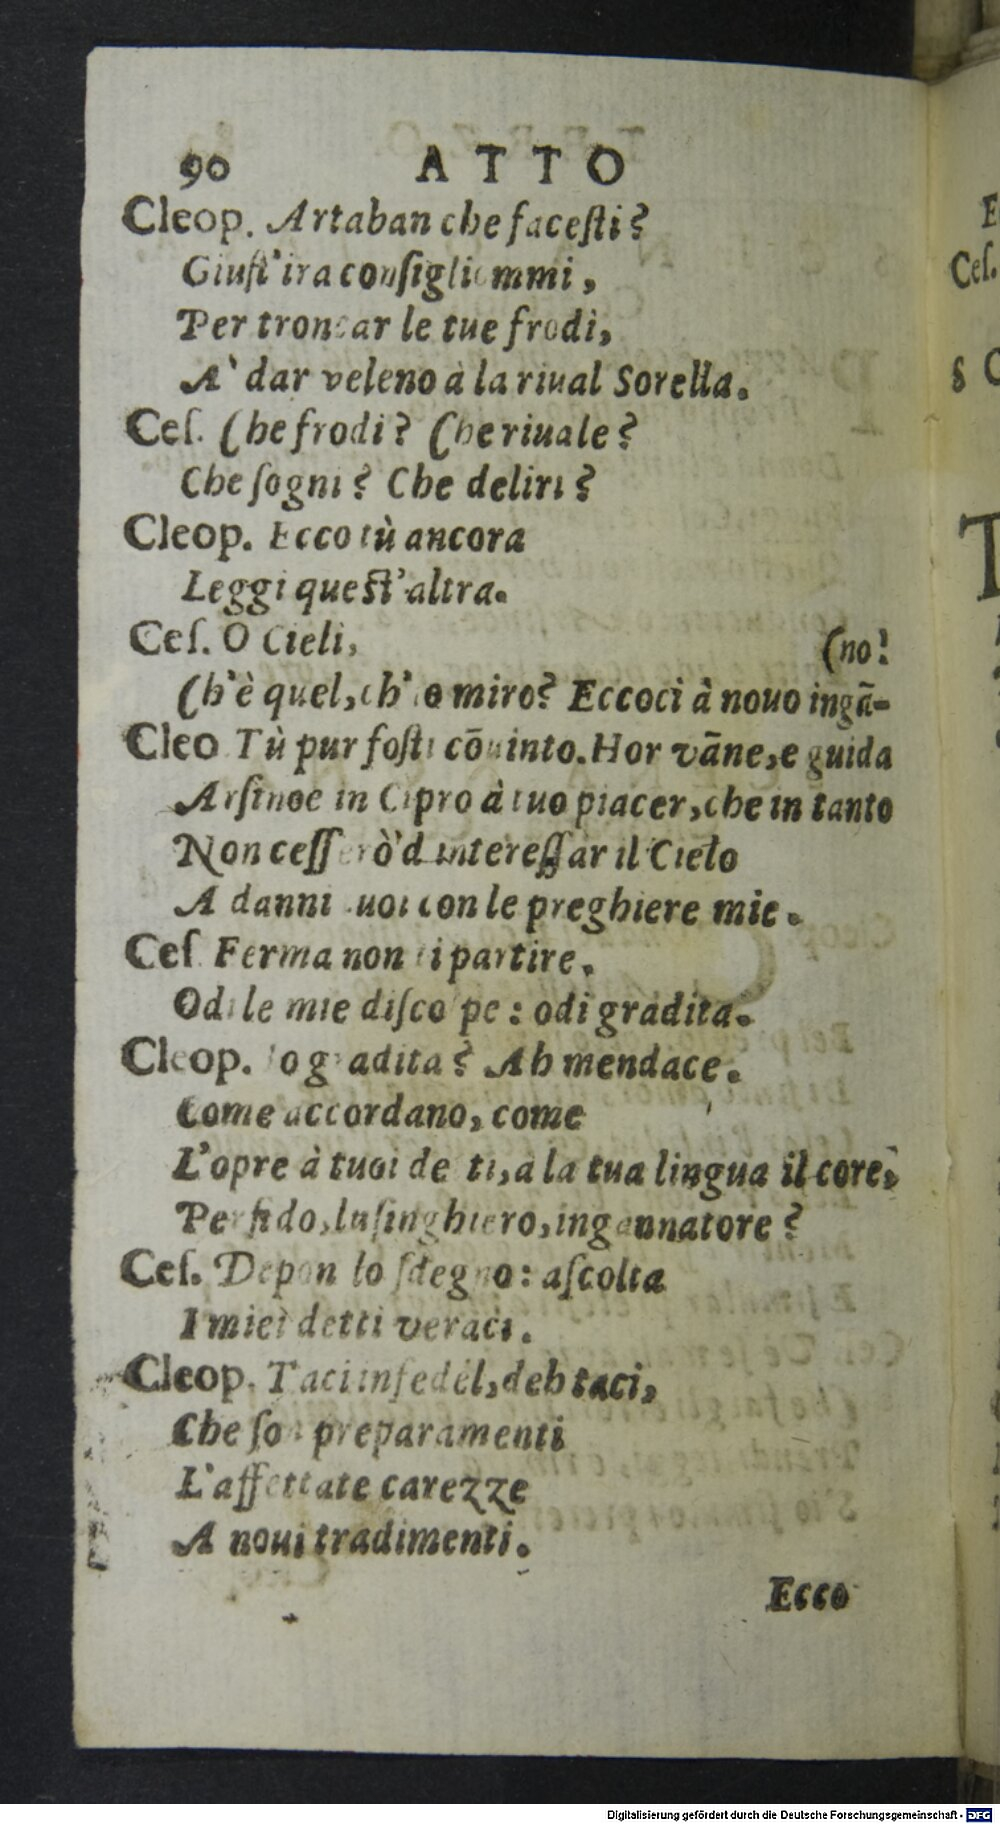 90 ATTO
Cleop. Artaban che faceſti?
Giuſt'ira conſigliommi,
Per troncar le tue frodi,
A' dar veleno à la riual Sorella.
Ceſ. Che frodi? Che riuale?
Che ſogni? Che deliri?
Cleop. Ecco tù ancora
Leggi queſt'altra.
Ceſ. O Cieli, (no!
Ch'è quel, ch'io miro? Eccoci à nouo ingã-
Cleo Tù pur foſti cõuinto. Hor vãne, e guida
Arſinoe in Cipro à tuo piacer, che in tanto
Non ceſſerò d'intereſſar il Cielo
A danni tuoi con le preghiere mie.
Ceſ. Ferma non ti partire.
Odi le mie diſcolpe: odi gradita.
Cleop. Io gradita? Ah mendace.
Come accordano, come
L'opre à tuoi deti, a la tua lingua il core,
Perfido, luſinghiero, ingannatore?
Ceſ. Depon lo ſdegno: aſcolta
I miei detti veraci.
Cleop. Taci infedel, deh taci,
Che ſon preparamenti
L'affettate carezze
A noui tradimenti.
Ecco
E
Ceſ.
S C
T
Digitalisierung gefördert durch die Deutsche Forschungsgemeinschaft - DFG